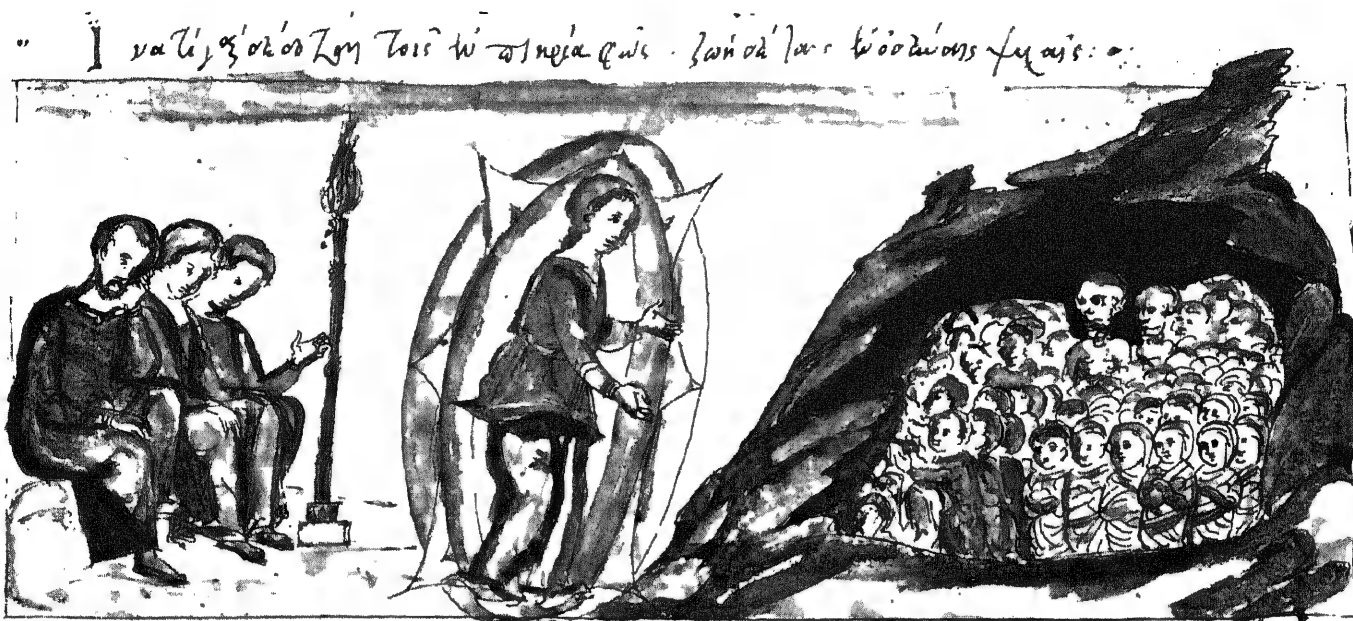 Ἵνα τί γὰρ δέδοται τοῖς ἐν πικρία φῶς · ζωὴ δὲ ταῖς ἐν ὀδύναις ψυχαῖς :